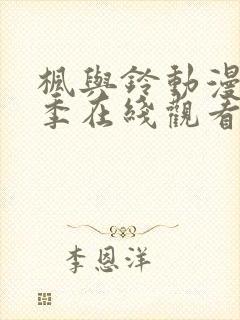 楓與鈴動漫
季在綫觀看
李恩洋